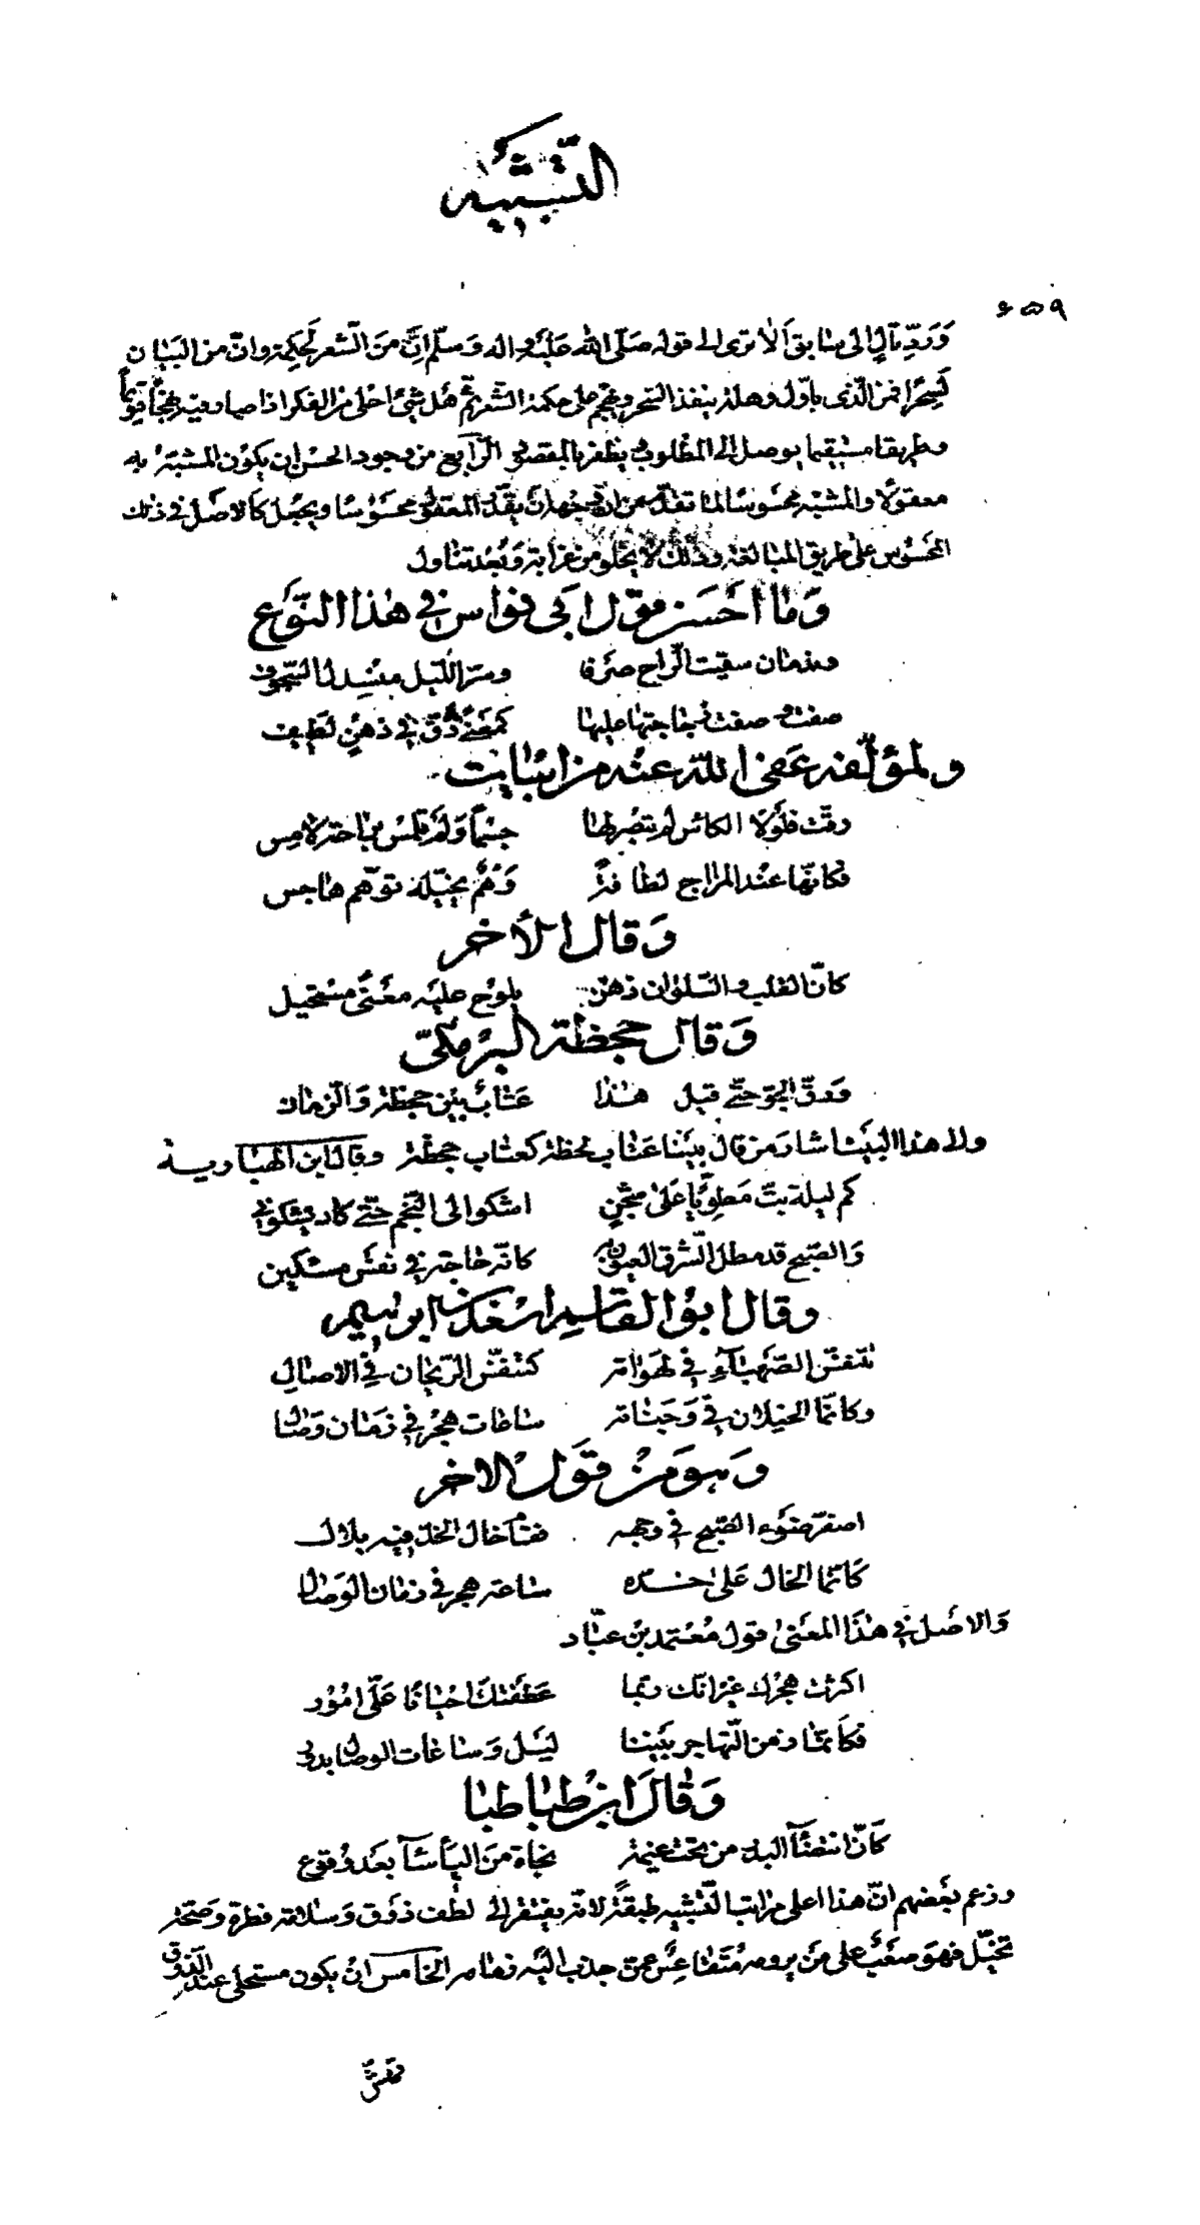 التشبيه
٤٥٩
وَرَدِّ تالٍ الى سابق اَلا ترى الى قوله صَلّى الله عليه واله وسلّم اِنّ مِنَ الشعر لحكمة وانّ من البَيان
لسِحرًا فمن الذى باوّل وهلة ينفذ السحر ويهجم على حكمة الشعر ثمّ هل شئ احلى من الفكر اذا صادف نهجًا قويمًا
وطريقا مستقيما يوصل الى المطلوب يظفر بالمقصود الرّابع من وجود الحسن ان يكون المشبّه به
معقولًا والمشبّه محسوسًا لما تقدّم من انّ وجهه ان يقدّر المعقول محسوسًا ويجعل كالاصل فى ذلك
المحسوس على طريق المبالغة وذلك لا يخلو من غرابة وبُعد تناول
وَما اَحسَن قول ابى نواس فى هذا النّوع
وندمان سقيت الرّاح صرفا ومتر اللّيل منسدل السّجوف
صفت وصفت زجاجتها عليها كمعنًى دقّ فى ذهنٍ لطيف
ولمؤلّفه عفى الله عنه من ابيات
رقّت فلولا الكاس لم تبصر لها جسمًا وَلم تلمس براحة لامس
فكانّها عند المزاج لطافة وَهْم يخيّله توهّم هاجس
وَقال الاخر
كانّ القلب والسّلوان ذهن يلوح عليه معنًى مستحيل
وَقال جحظة البرمكىّ
ورقّ الجوّ حتّى قيل هذا عتاب بين جحظة وَالزمان
والى هذا البيت اشار من قال بيننا عتاب لحظة كعتاب جحظة وقال ابن الهبّارية
كم ليلة بتّ مطويًّا على شجنٍ اشكو الى النّجم حتّى كاد يشكونى
وَالصّبح قد مطل الشرق العيون به كانّه حاجة فى نفس مسكين
وقال ابو القاسم اسعد بن ابراهيم
تتنفّس الصّهباء فى لهواته كتنفّس الرّيحان فى الاصال
وكانّما الخيلان فى وَجناته ساعات هجر فى زمان وصال
وَهو من قول الاخر
اسفر ضوء الصّبح فى وجهه فقام خال الخدّ فيه بلال
كَانّما الخال على خدّه ساعة هجر فى زمان الوَصال
وَالاصل فى هذا المعنى قول مُعتمد بن عبّاد
اكثرت هجرك غير انّك ربّما عطفتك احيانًا علىّ امُور
فكانّما زمن التّهاجر بيننا ليل وَساعات الوصال بدور
وَقال ابن طباطبا
كَانّ انتضاء البدر من تحت غيمة نجاة من البأساء بعد وقوع
وزعم بعضهم انّ هذا اعلى مراتب التّشبيه طبقةً لانّه يفتقر الى لطف ذوق وَسلامة فطرة وَصحّة
تخيّل فهو صعب على مَن يرومه متقاعس عمق جذب اليه زمامه الخامس ان يكون مستحلى عند الذوق